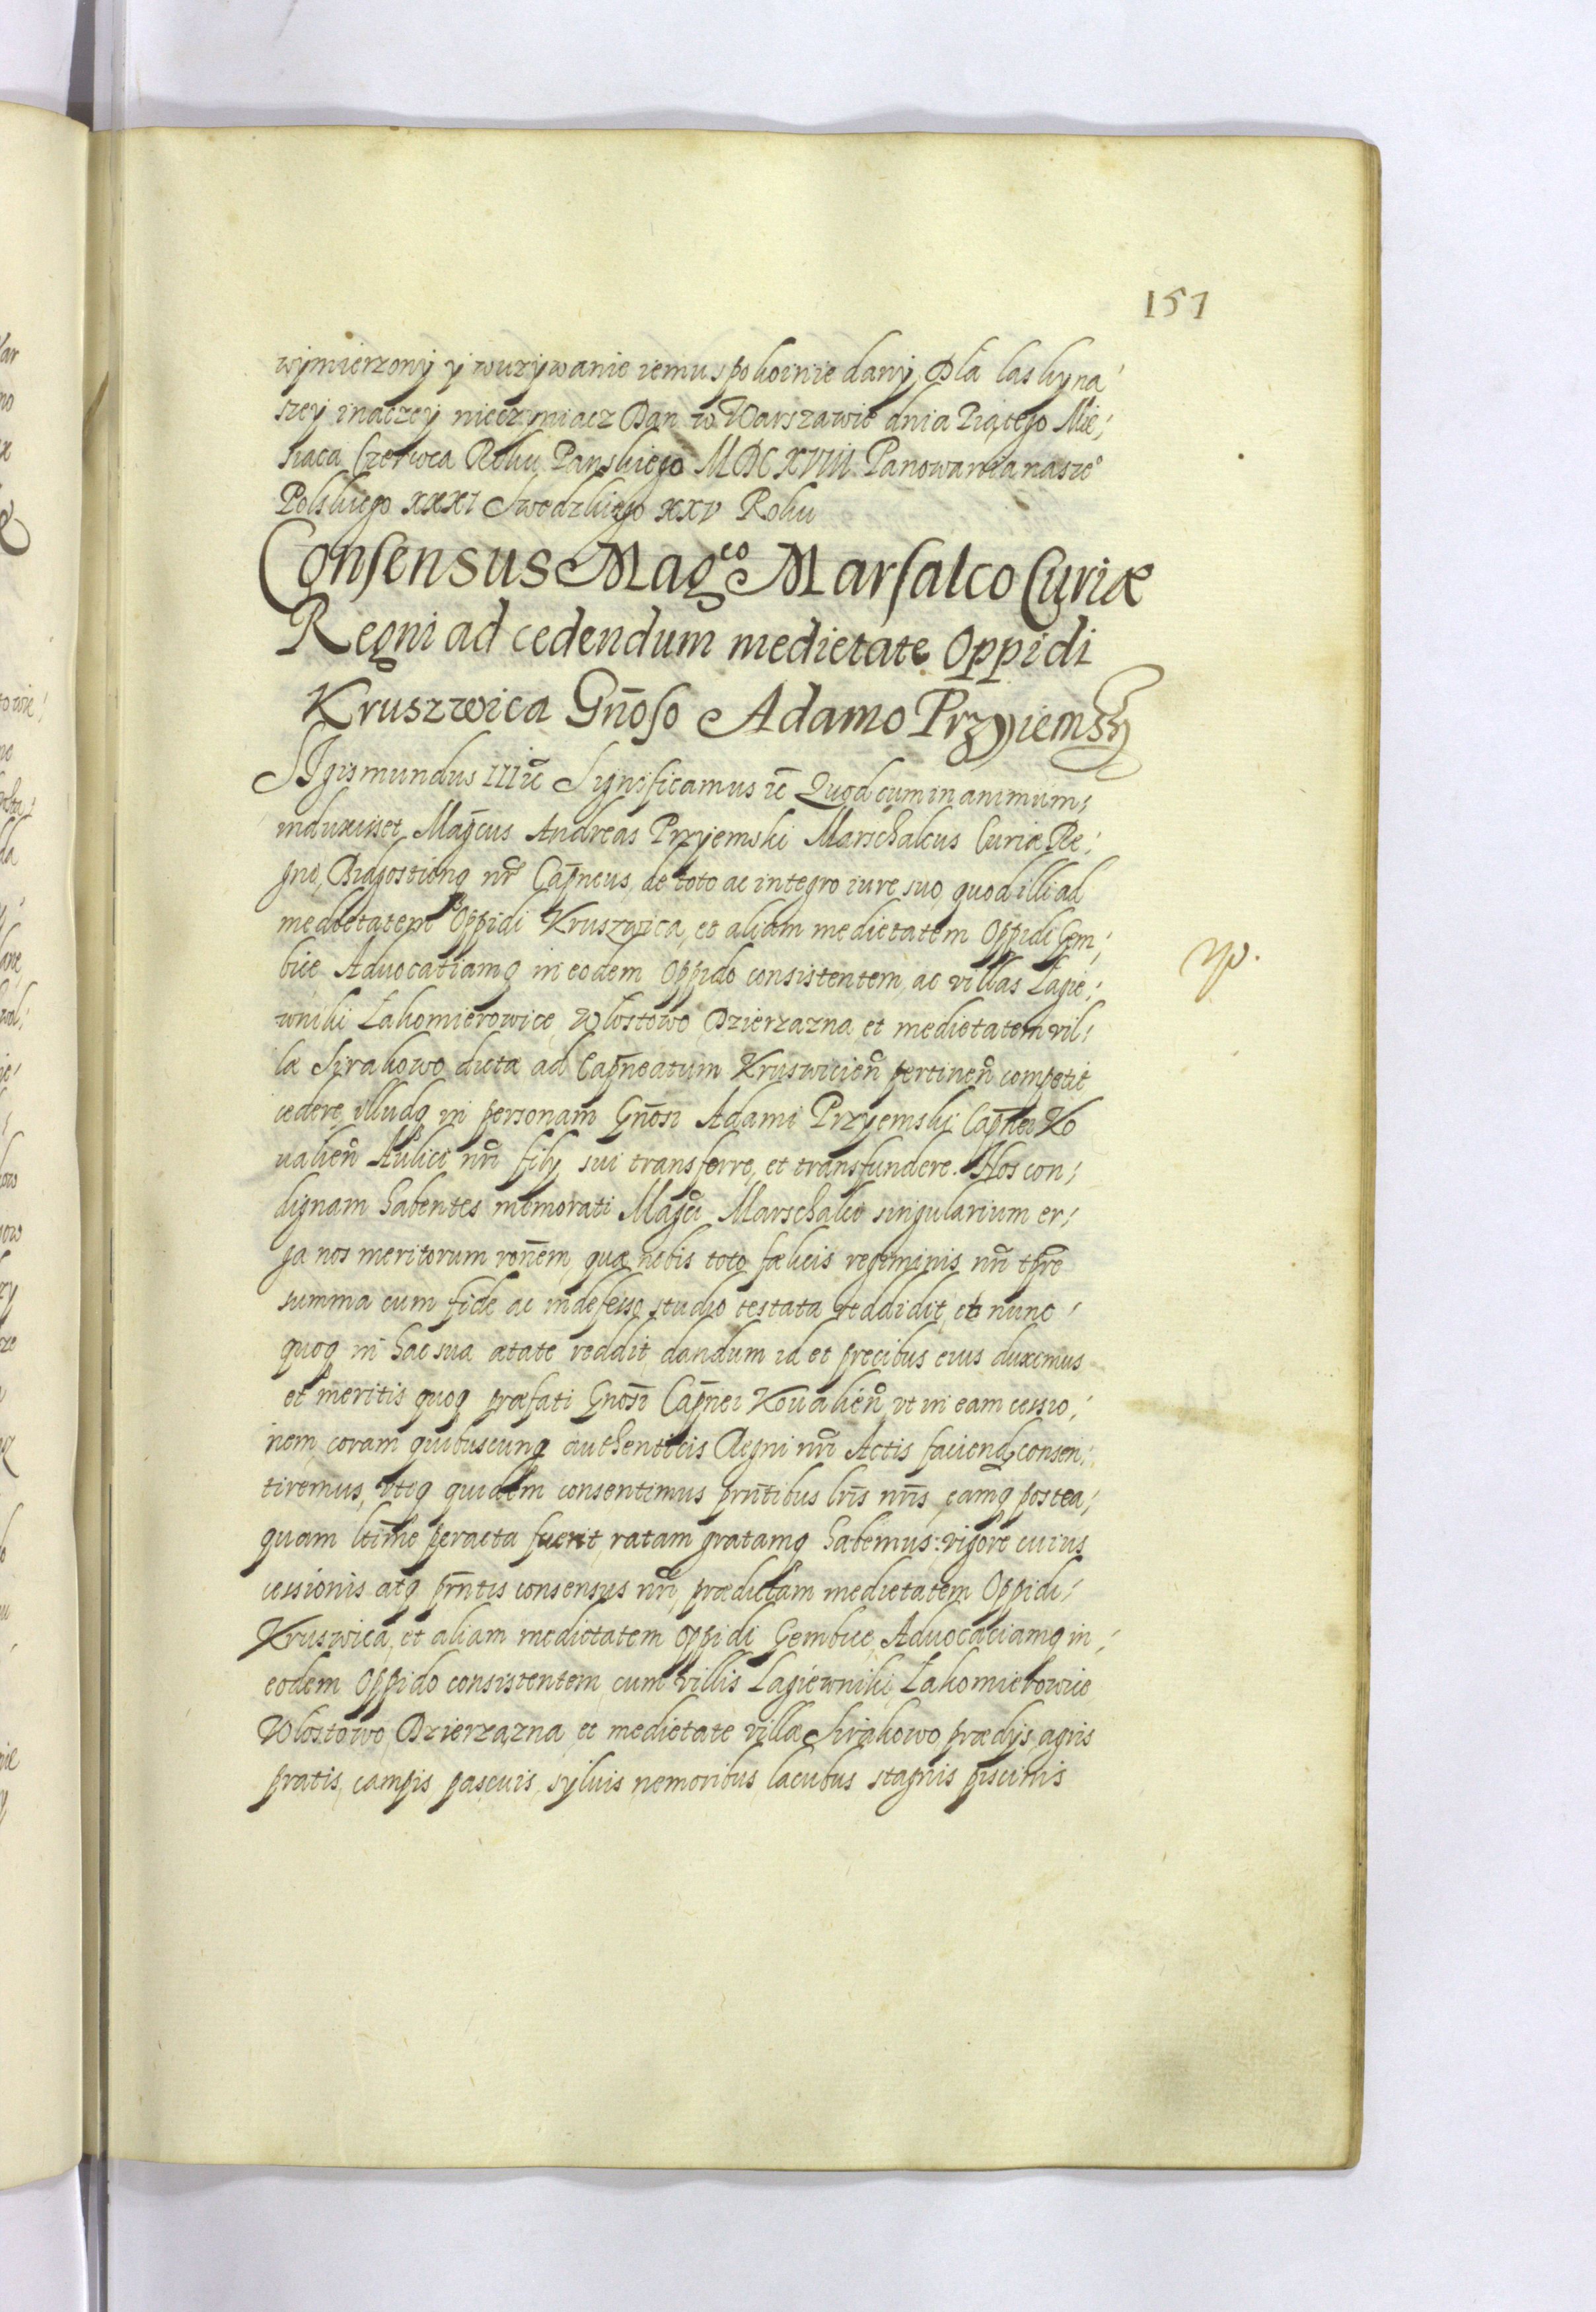 151
wymierzony y wuzywanie iemu spokoinie dany, Dla laskyna
szey inaczey nieczyniacz Dan w Warszawie dnia Piątego Mie
siaca Czerwca Roku Panskiego MDCXVIII Panowania nasze°
Polskiego XXXI Swedzkiego XXV Roku
Consensus Mag^co Marsalco Curiæ
Regni ad cedendum medietate Oppidi
Kruszwica Gn̄oso Adamo Przyiemsky
SIgismundus III ꝛc̄ Significamus ꝛc̄ Quod cum in animum
induxisset Mag̃cus Andreas Przyemski Marschalcus Curiæ Re
gni, Bidgostienq nr̄ Cap̄neus, de toto ac integro iure suo, quod illi ad
medietatem Oppidi Kruszwica, et aliam medietatem Oppidi Gem
bice Aduocatiamq in eodem Oppido consistentem, ac villas Lagie
wniki Łakomierowice, Wlostowo Dzierzazna et medietatem vil
læ Sirakowo dictæ ad Cap̄neatum Kruswicien̄ pertinen̄ competit
cedere, illudq in personam Gn̄osi Adami Przyemski Cap̄nei Ko
ualien̄ Aulici nr̄i filij sui transferre, et transfundere. Nos con
dignam habentes memorati Mag̃ci Marschalci singularium er
ga nos meritorum ron̄em, quæ nobis toto fælicis regiminis nr̄i tp̄re
summa cum fide ac indefesso studio testata reddidit, et nunc
quoq in hac sua ætate reddit, dandum id et precibus eius duximus
et meritis quoq præfati Gn̄osi Cap̄nei Koualien̄, vt in eam cessio
nem, coram quibuscunq authenticis Regni nr̄i Actis faciend, consen
tiremus, vtiq quidem consentimus prn̄tibus lr̄is nr̄is, eamq postea
quam ltim̄e peracta fuerit, ratam gratamq habemus: vigore cuius
cessionis atq prn̄tis consensus nr̄i, prædictam medietatem Oppidi
Kruswica, et aliam medietatem Oppidi Gembice, Aduocaciamq in
eodem Oppido consistentem, cum villis Lagiewniki, Łakomierowice
Wlostowo, Dzierzazna, et medietate villæ Sirakowo, prædijs, agris
pratis, campis, pascuis, syluis, nemoribus, lacubus stagnis piscinis